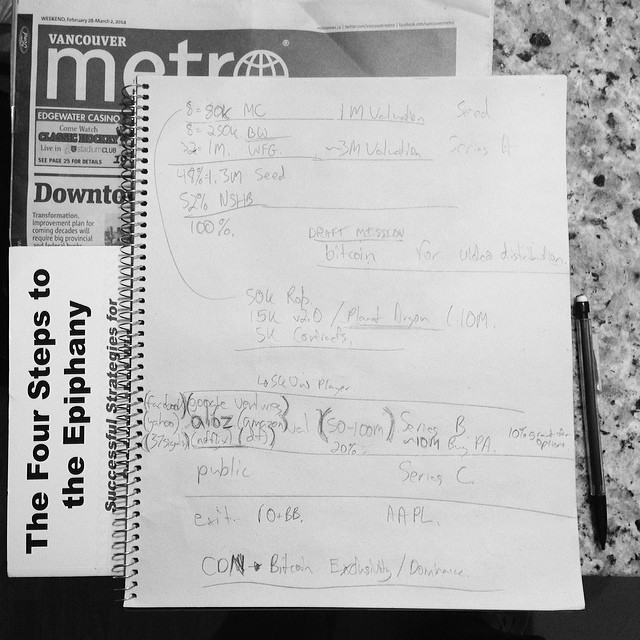 WEEKEND, February 28-March 2, 2014
VANCOUVER
metro
EDGEWATER CASINO
Come Watch
CLASSIC HOCKEY
Live in stadiumCLUB
SEE PAGE 25 FOR DETAILS
Downto
Transformation.
improvement plan for
coming decades will
require big provincial
The Four Steps to
the Epiphany
Successful Strategies for
MC 1M Valuation Seed
8= 250k BW
1M. WFG. ~3M Valuation Series A
1.3M Seed
52% NSHB
100%.
DRAFT MISSION
bitcoin for video distribution.
50k Rob.
15k v2.0 / Planet Dragon (10M.
5k Contracts.
Player
(facebook) (google ventures)
(yahoo) a16z (amazon) (50-100M) Series B 10%
(37signals) (netflix) 20% ~10M
public Series C.
exit. AAPL.
CDN → Bitcoin Exclusivity / Dominance.